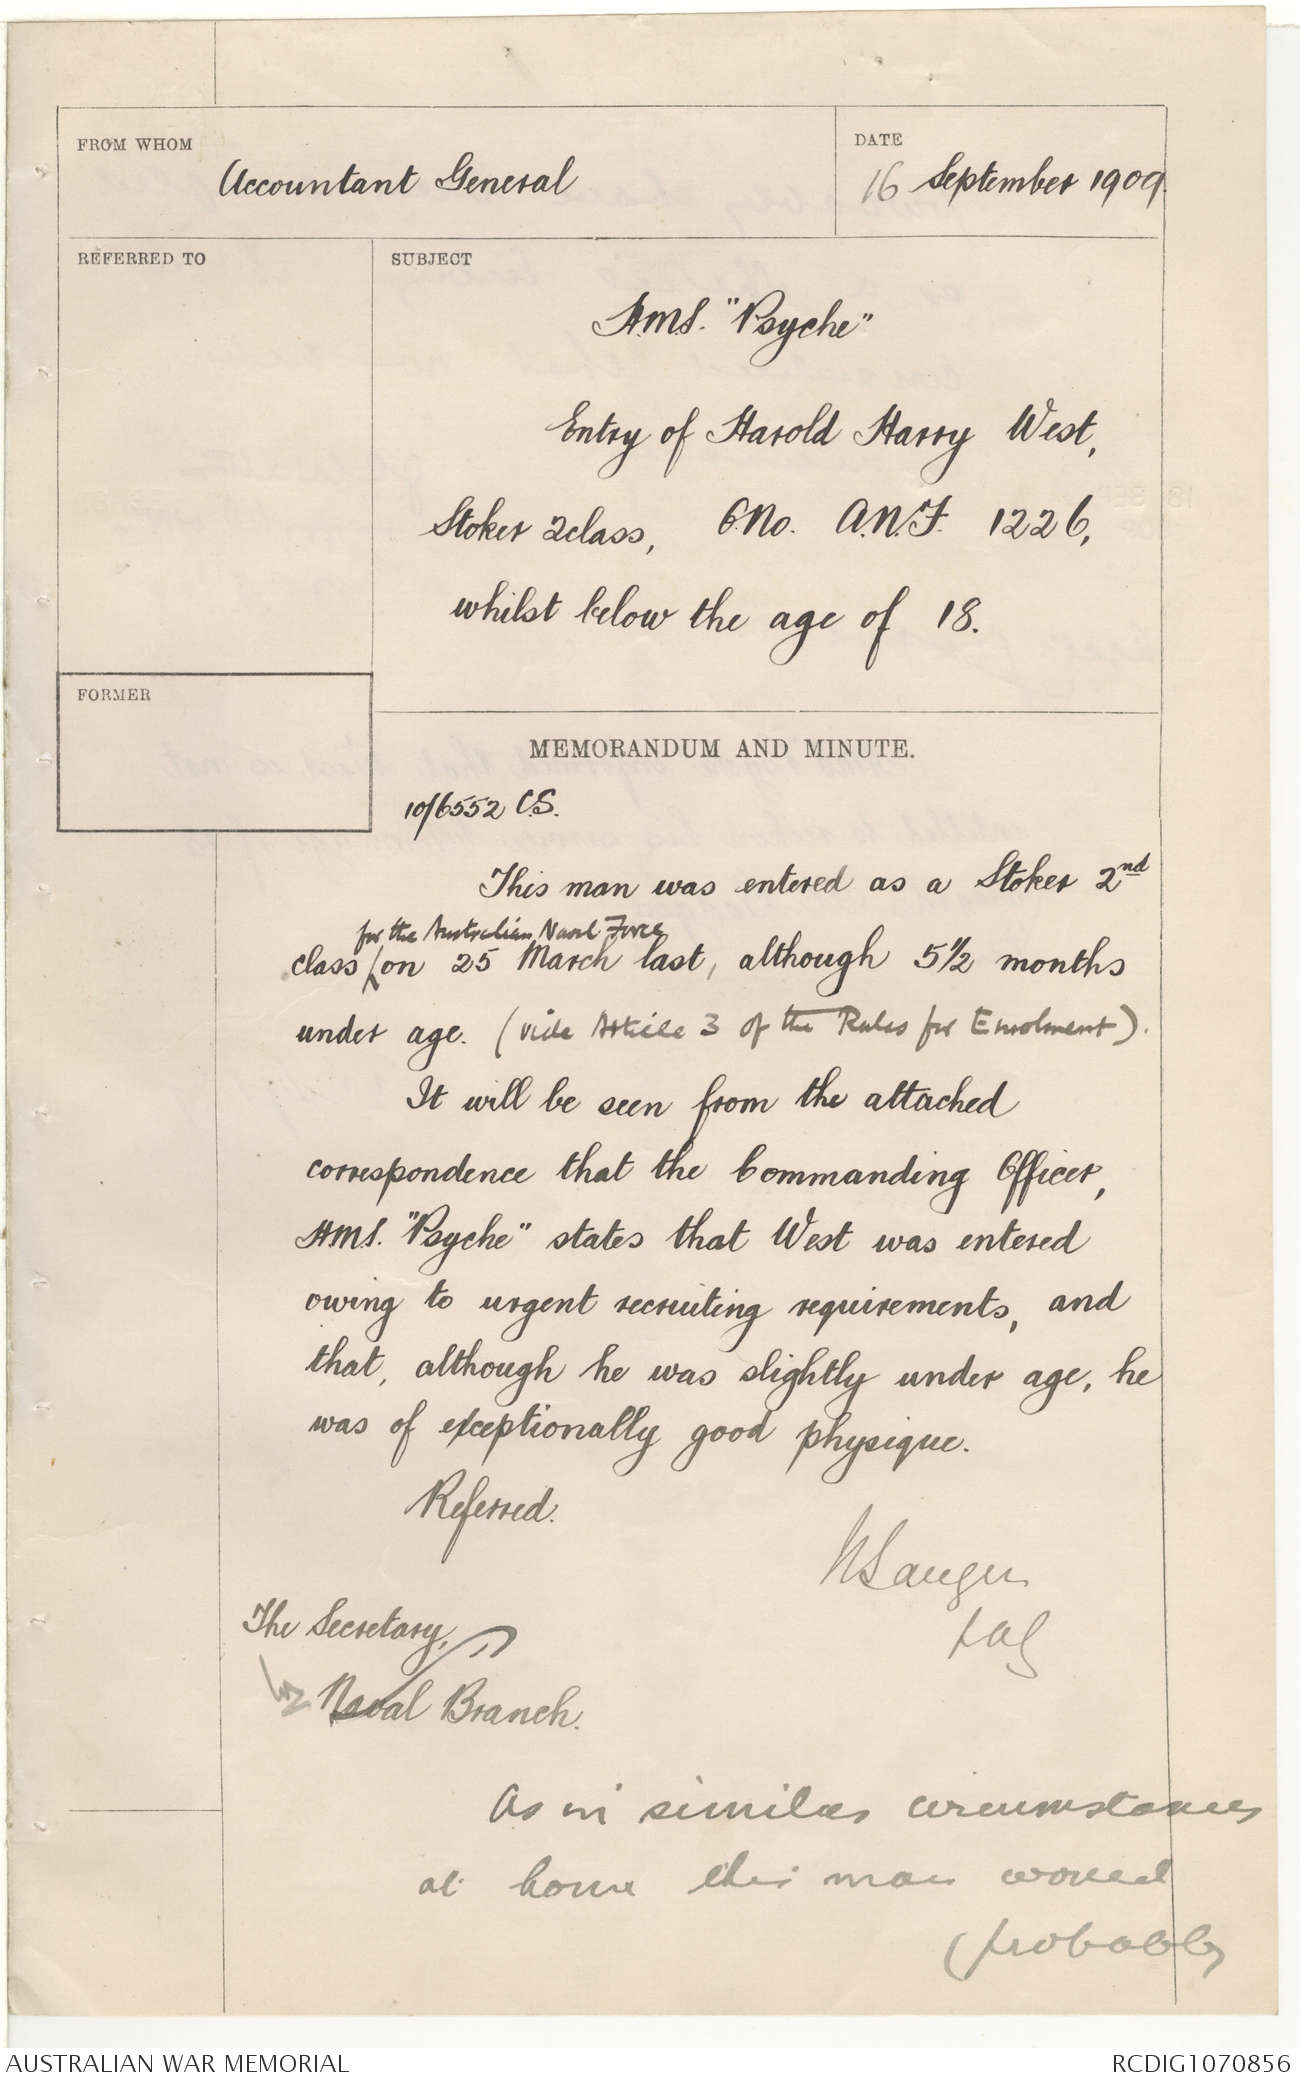 FROM WHOM
Accountant General
DATE
16 September 1909.
REFERRED TO
SUBJECT
H.M.S. "Psyche"
Entry of Harold Harry West,
Stoker 2 class, O.No. A.N.F. 1226,
whilst below the age of 18.
FORMER
MEMORANDUM AND MINUTE.
10/6552 C.S.
This man was entered as a Stoker 2nd
for the Australian Naval Force
class / on 25 March last, although 5 1/2 months
under age. (vide Article 3 of the Rules for Enrolment).
It will be seen from the attached
correspondence that the Commanding Officer,
HMS. "Psyche" states that West was entered
owing to urgent recruiting requirements, and
that, although he was slightly under age, he
was of exceptionally good physique.
Referred.
The Secretary,
Naval Branch.
As in similar circumstances
at home this man would
probably
AUSTRALIAN WAR MEMORIAL
RCDIG1070856